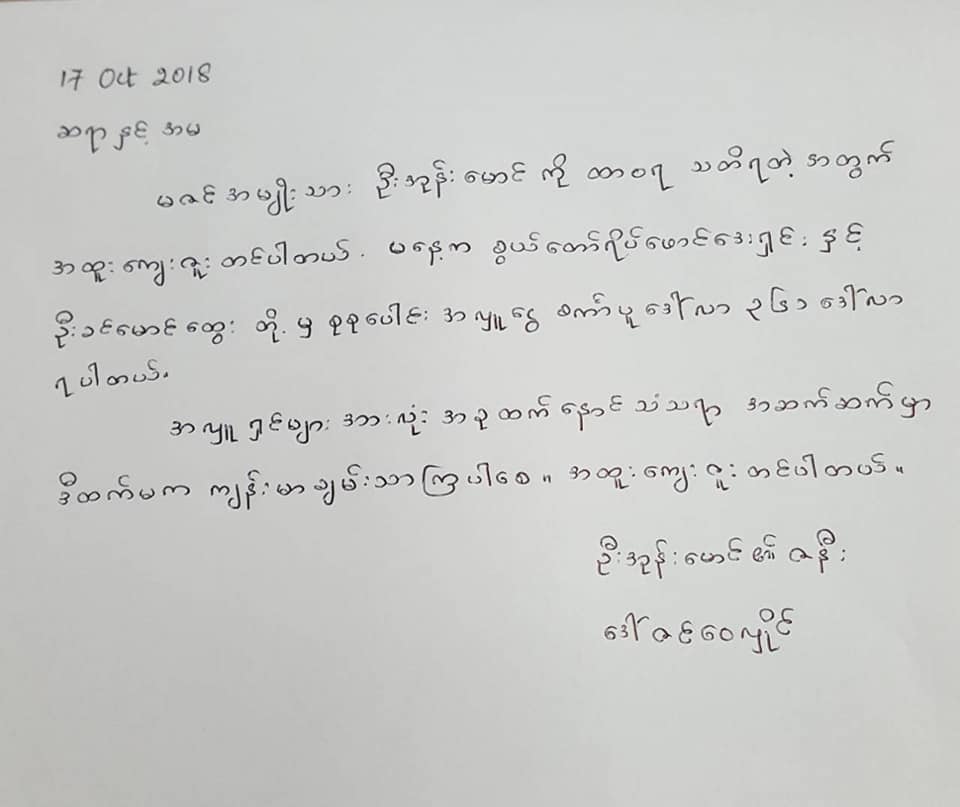 17 Oct 2018
ဆရာ နှင့် အမ
မဇင် အမျိုးသား ဦးအုန်းမောင် ကို ထာဝရ သတိရတဲ့ အတွက်
အထူး ကျေးဇူး တင်ပါတယ်. မနေ့က စွယ်တော်ရိပ်ဖောင်ဒေးရှင်း နှင့်
ဦးခင်မောင်ထွေး တို့ မှ စုစုပေါင်း အလှူငွေ စင်္ကာပူ ဒေါ်လာ ဒေါ်လာ
ရပါတယ်.
အလှူရှင်များ အားလုံး အခုထက် နောင် သံသရာ အဆက်ဆက်မှာ
ဒီထက်မက ကျန်းမာချမ်းသာကြပါစေ။ အထူးကျေးဇူးတင်ပါတယ်။
ဦးအုန်းမောင်၏ ဇနီး
ဒေါ်ဇင်ဝေလှိုင်